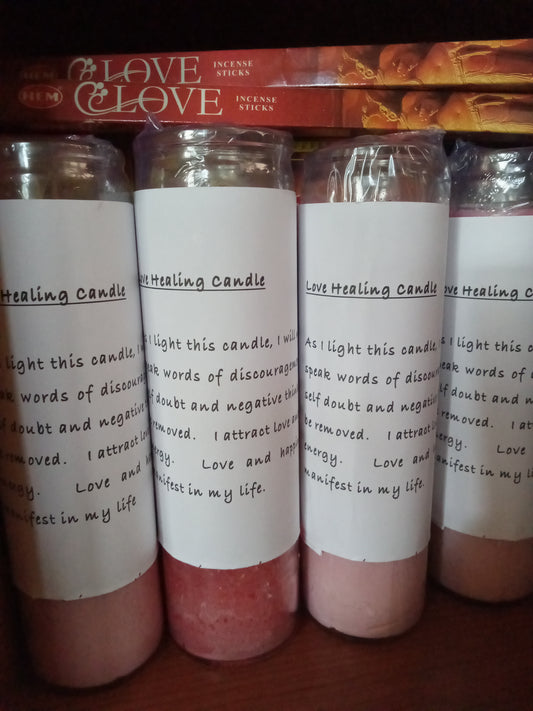 LOVE INCENSE STICKS
HEM LOVE INCENSE STICKS
Healing Candle
light this candle, I
words of discourag
doubt and negative
removed. I attract
Love and
manifest in my life
Love Healing Candle
I light this candle, I will
speak words of discouragem
self doubt and negative thin
removed. I attract love
energy. Love and happi
manifest in my life.
Love Healing Candle
As I light this candle,
speak words of discou
self doubt and negative
be removed. I attract
energy. Love and
manifest in my life.
Love Healing C
I light this
speak words of
self doubt and
removed.
energy. Love
manifest in my